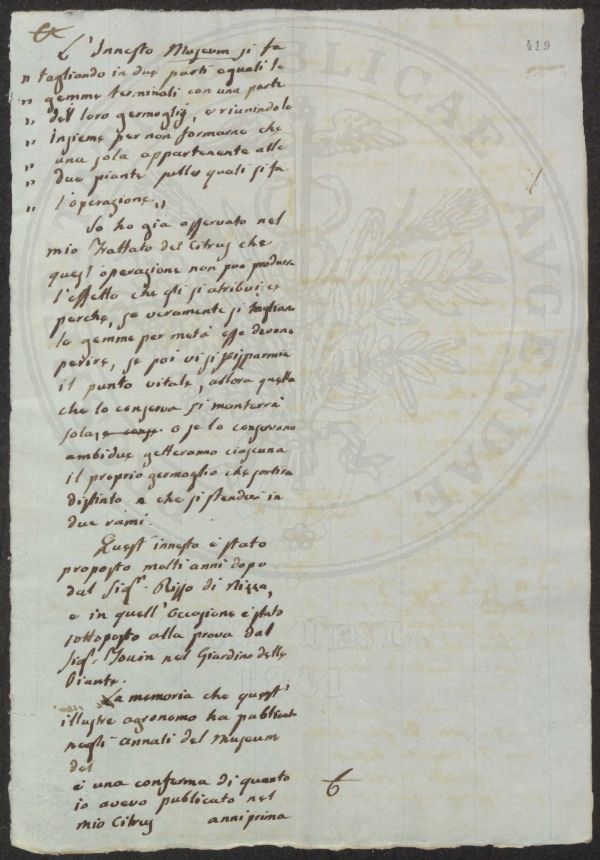 419
L'Innesto Museum si fa
" tagliando in due parti eguali le
" gemme terminali con una parte
" del loro germoglij, e riunindole
" Insieme per non formarne che
" una sola appartenente alle
" due piante sulle quali si fa
" l'operazione"
Io ho gia osservato nel
mio Trattato del Citrus che
quest operazione non puo produrre
l'effetto che gli si atribuisce
perche, se veramente si tagliano
le gemme per metà esse devono
perire, se poi vi si risparmia
il punto vitale, allora quella
che lo conserva si manterrà
sola, e se lo conservano
ambidue getteranno ciascuna
il proprio germoglio che sortira
distinto e che si stenderà in
due rami.
Quest innesto è stato
proposto molti anni dopo
dal Sigr. Risso di Nizza,
e in quell'occasione è stato
sottoposto alla prova dal
Sigr. Touin nel Giardino delle
Piante.
La memoria che quest'
illustre agronomo ha publicat
negli annali del Museum
del
è una conferma di quanto
io avevo publicato nel
mio Citrus anni prima